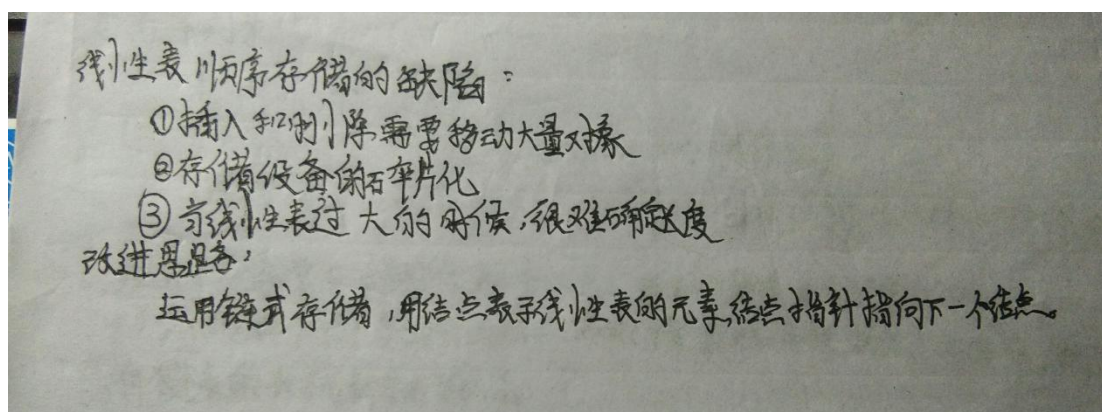 线性表顺序存储的缺陷：
①插入和删除需要移动大量对象
②存储设备的碎片化
③当线性表过大的时候，很难确定长度
改进思路：
运用链式存储，用结点表示线性表的元素，结点指针指向下一个结点。